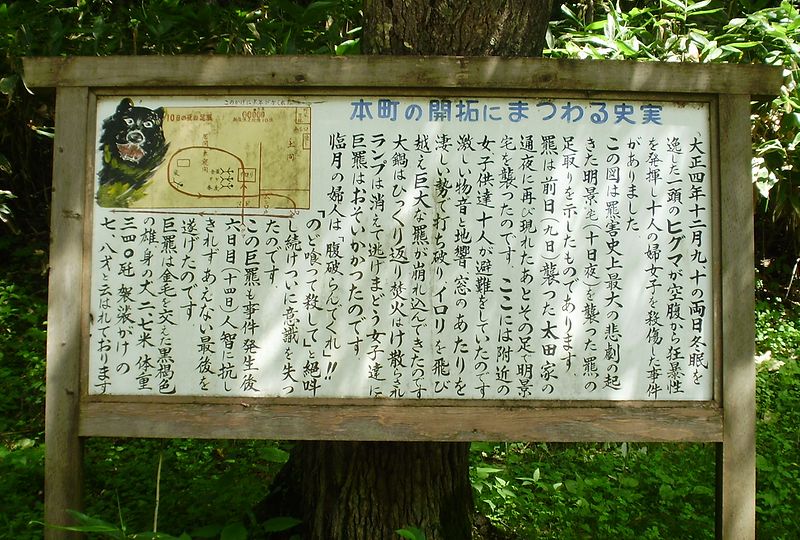 本町の開拓にまつわる史実
大正四年十二月九、十の両日冬眠を
逸した一頭のヒグマが空腹から狂暴性
を発揮し十人の婦女子を殺傷した事件
がありました
この図は羆害史上最大の悲劇の起
きた明景宅(十日夜)を襲った羆の
足取りを示したものであります
羆は前日(九日)襲った太田家の
通夜に再び現れたあとその足で明景
宅を襲ったのです ここには附近の
女子供達十人が避難をしていたのです
激しい物音と地響、窓のあたりを
凄しい勢で打ち破りイロリを飛び
越え巨大な羆が崩れ込んできたのです
大鍋はひっくり返り焚火はけ散らされ
ランプは消えて逃げまどう女子達に
巨羆はおそいかかったのです
臨月の婦人は「腹破らんでくれ」!!
「のど喰って殺して」と絶叫
し続けついに意識を失っ
たのです
この巨羆も事件発生後
六日目(十四日)人智に抗し
きれずあえない最後を
遂げたのです
巨羆は金毛を交えた黒褐色
の雄、身の丈二・七米 体重
三四〇瓩 袈裟がけの
七、八才と云はれております